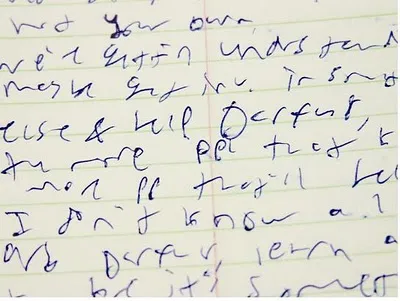 not your own
get in understand
maybe get inv. in s
else & help Darfur,
the more ppl that k
more pp that'll hel
I don't know a
Darfur, learn a
be it's some